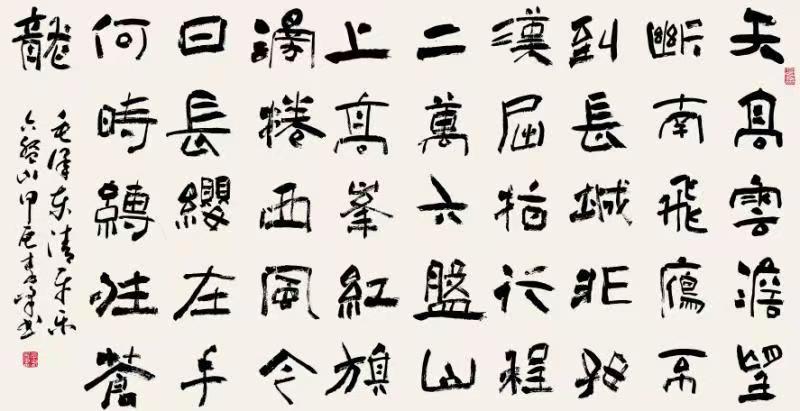 天高雲澹望
斷南飛鴈不
到長城非好
漢屈指行程
二萬六盤山
上高峯紅旗
漫捲西風今
日長纓在手
何時縛住蒼
龍
毛澤东清平乐
六盤山甲辰峰书